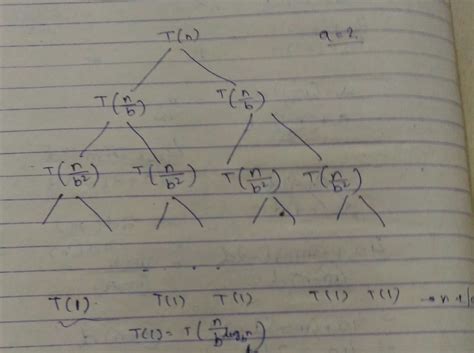 T(n) a = 2.
T(n/b) T(n/b)
T(n/b²) T(n/b²) T(n/b²) T(n/b²)
. . .
T(1) T(1) T(1) T(1) T(1)
T(1) = T(n/b^log_b n)